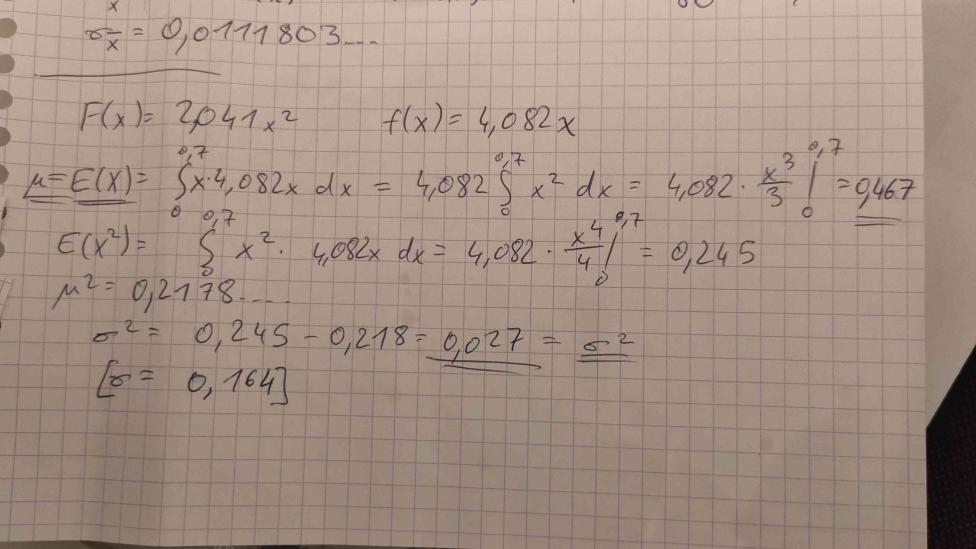 σx̄ = 0,0111803...
F(x)= 2,041x² f(x)= 4,082x
μ=E(X)= ∫₀^0,7 x·4,082x dx = 4,082 ∫₀^0,7 x² dx = 4,082 · x³/3 |₀^0,7 = 0,467
E(x²)= ∫₀^0,7 x² · 4,082x dx = 4,082 · x⁴/4 |₀^0,7 = 0,245
μ² = 0,2178....
σ² = 0,245 - 0,218 = 0,027 = σ²
[σ = 0,164]